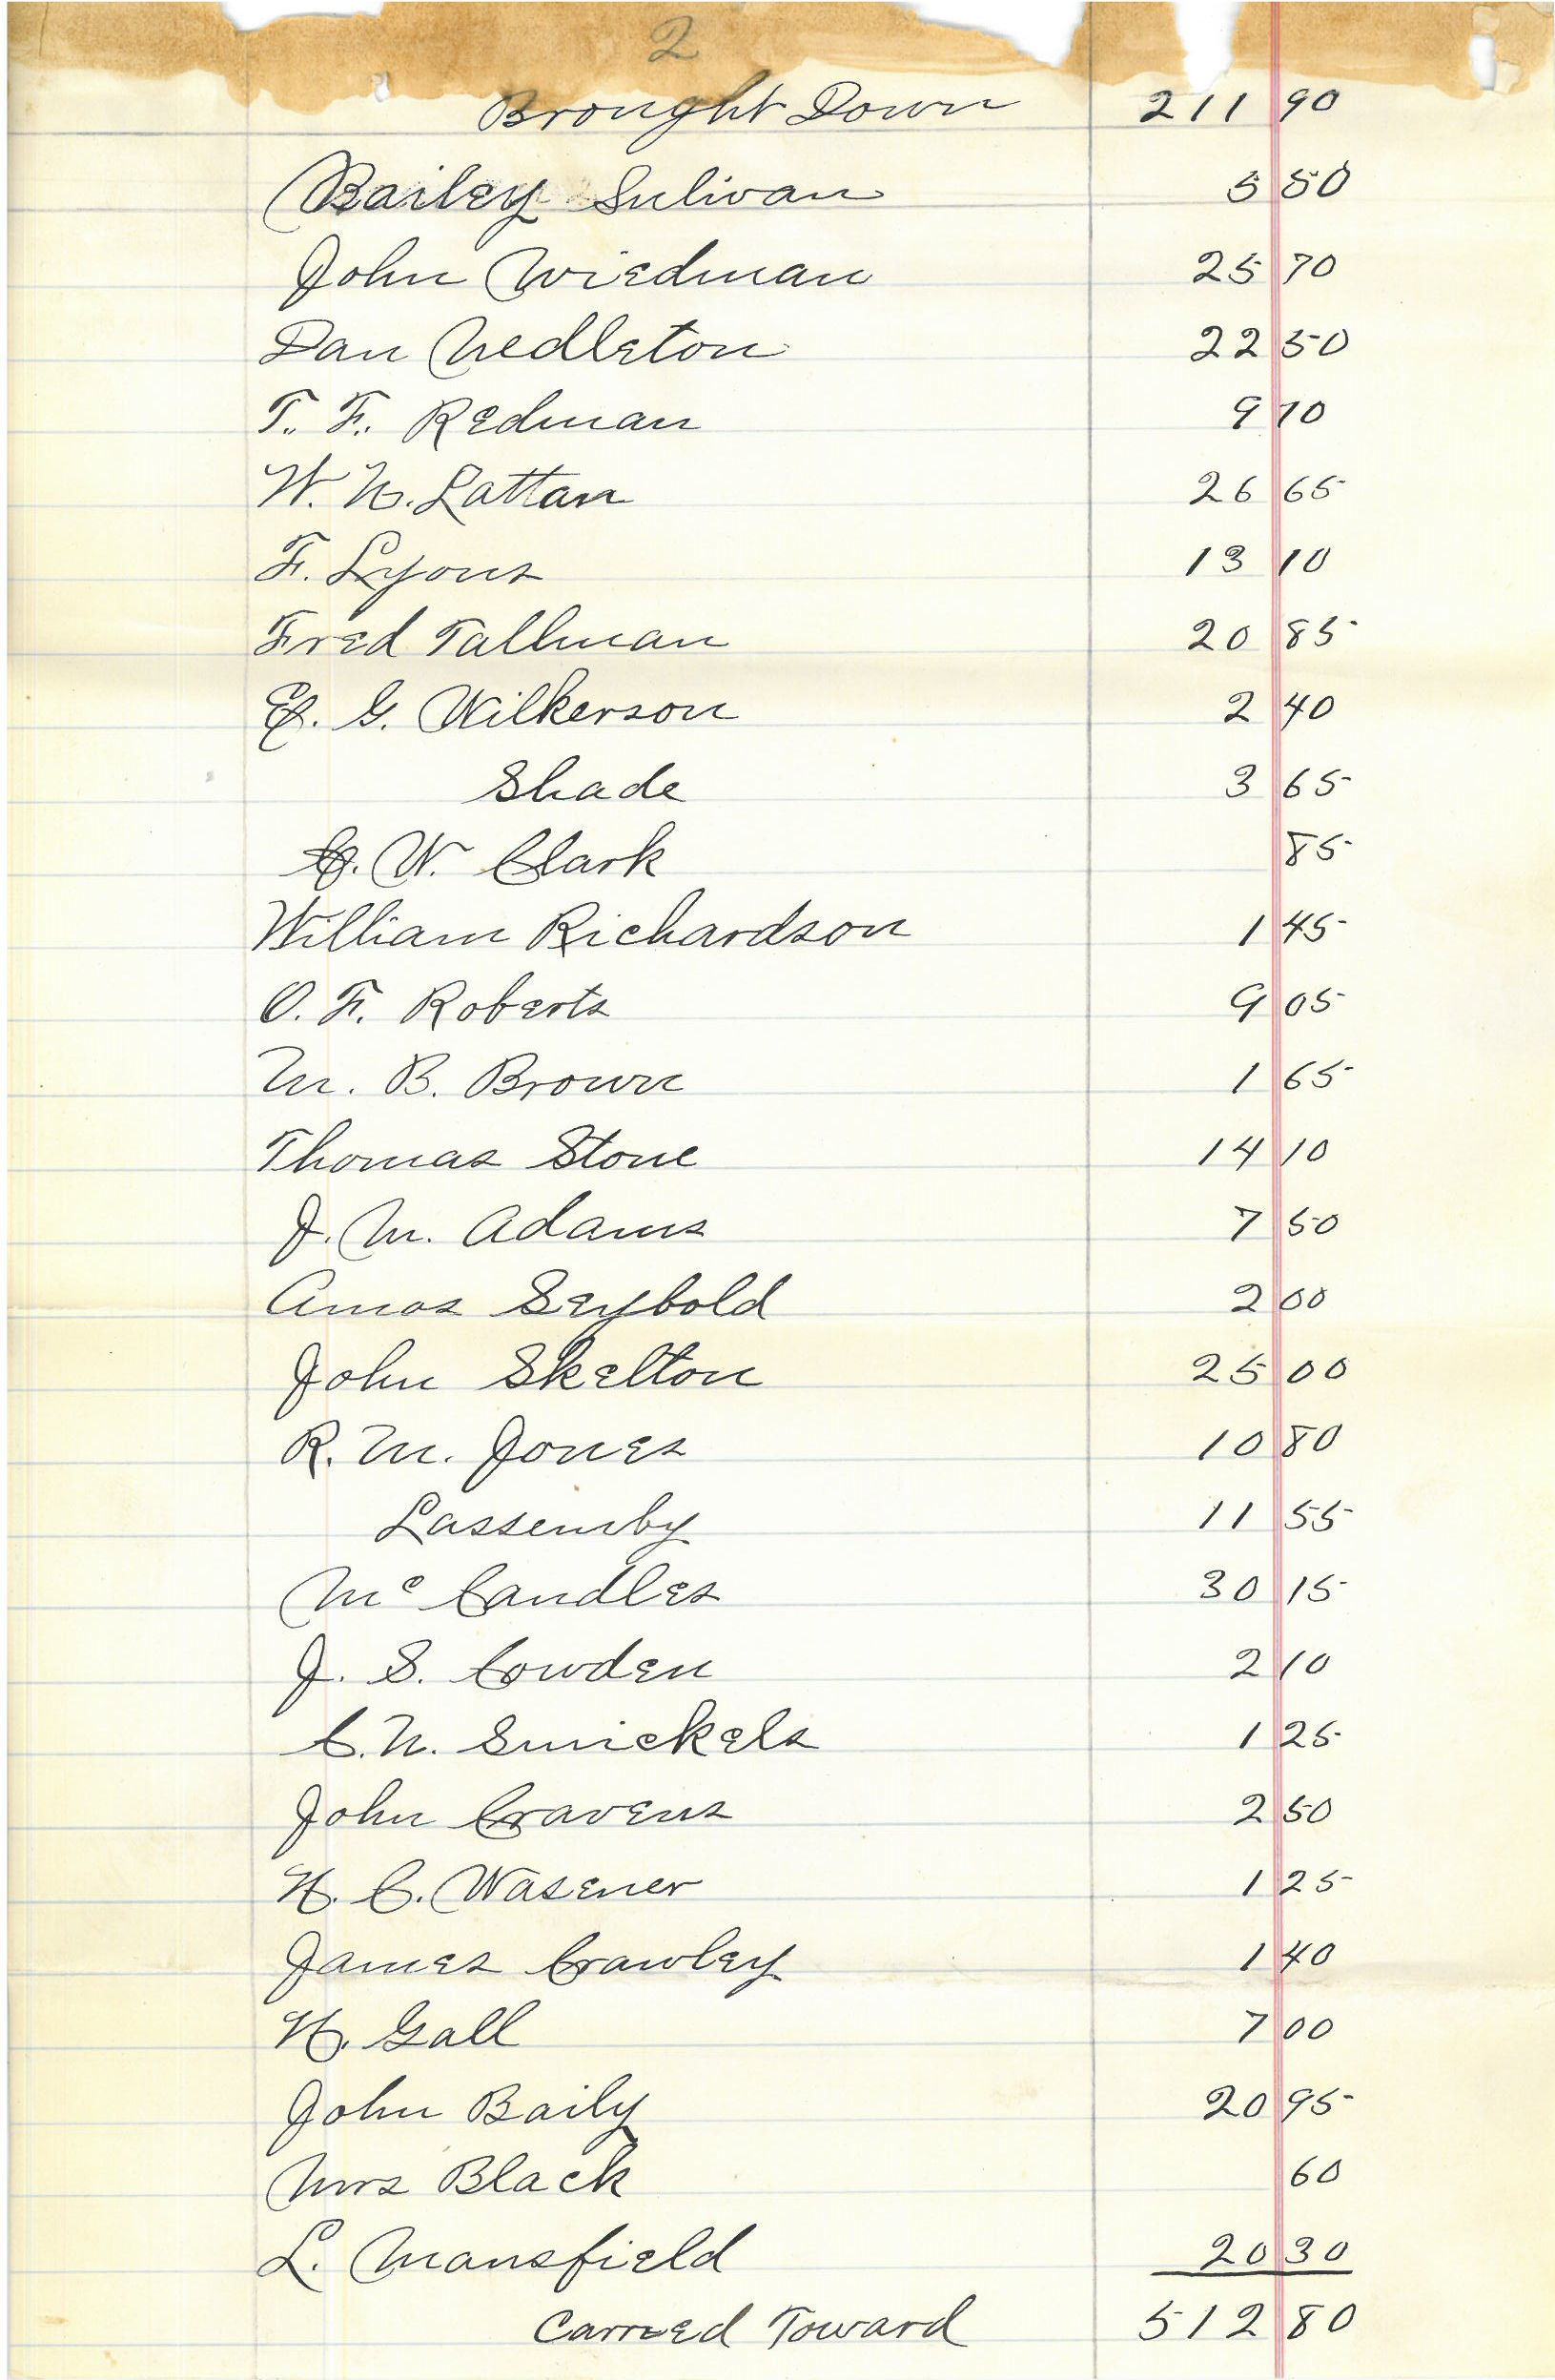 2
Brought Down 211 90
Bailey Sulivan 5 50
John Wiedman 25 70
Dan Nedleton 22 50
T. F. Redman 9 70
W. N. Lattan 26 65
F. Lyons 13 10
Fred Tallman 20 85
E. G. Wilkerson 2 40
Shade 3 65
C. W. Clark 85
William Richardson 1 45
O. F. Roberts 9 05
M. B. Brown 1 65
Thomas Stone 14 10
J. M. Adams 7 50
Amos Seybold 2 00
John Skelton 25 00
R. M. Jones 10 80
Lassemby 11 55
Mc Candles 30 15
J. S. Cowden 2 10
C. N. Smickels 1 25
John Cravens 2 50
H. C. Wasener 1 25
James Crawley 1 40
H. Gall 7 00
John Baily 20 95
Mrs Black 60
L. Mansfield 20 30
Carried Toward 512 80